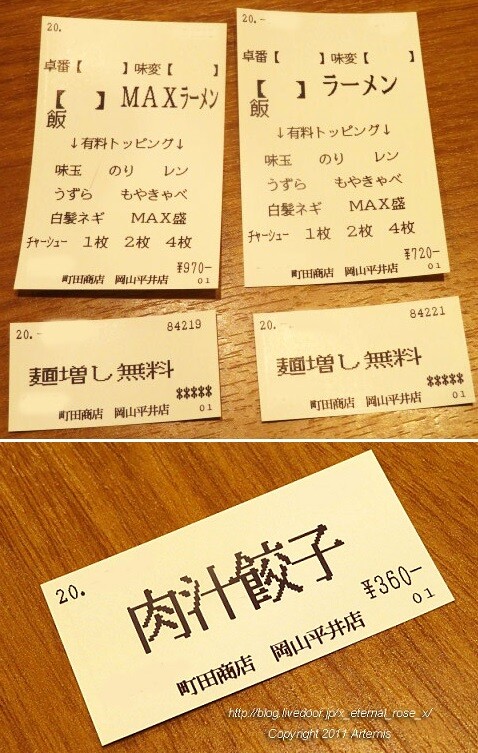 20.
卓番【　　】味変【　　】
【　】MAXラーメン
飯
↓有料トッピング↓
味玉　のり　レン
うずら　もやきゃべ
白髪ネギ　MAX盛
チャーシュー　1枚　2枚　4枚
¥970-
町田商店　岡山平井店　01
20.-
卓番【　　】味変【　　】
【　】ラーメン
飯
↓有料トッピング↓
味玉　のり　レン
うずら　もやきゃべ
白髪ネギ　MAX盛
チャーシュー　1枚　2枚　4枚
¥720-
町田商店　岡山平井店　01
20.-　84219
麺増し無料
¥¥¥¥¥
町田商店　岡山平井店　01
20.-　84221
麺増し無料
¥¥¥¥¥
町田商店　岡山平井店　01
20.
肉汁餃子
¥360-
町田商店　岡山平井店　01
http://blog.livedoor.jp/x_eternal_rose_x/
Copyright 2011 Artemis